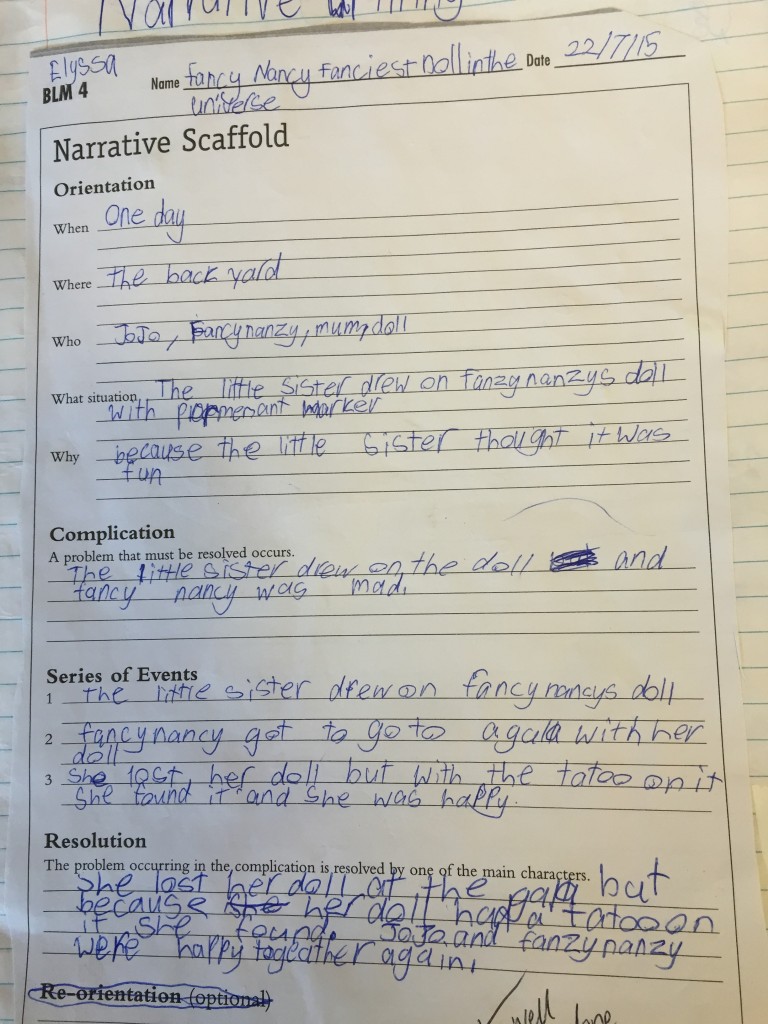 Narrative Writing
Elyssa
BLM 4
Name Fancy Nancy Fanciest Doll in the Date 22/7/15
universe
Narrative Scaffold
Orientation
When One day
Where the back yard
Who JoJo, Fancynanzy, mum, doll
What situation The little sister drew on fanzynanzys doll
with pormenant marker
Why because the little sister thought it was
fun
Complication
A problem that must be resolved occurs.
The little sister drew on the doll and
fancy nancy was mad.
Series of Events
1 the little sister drew on fancynancys doll
2 fancynancy got to go to a gala with her
doll
3 She lost her doll but with the tatoo on it
She found it and she was happy.
Resolution
The problem occurring in the complication is resolved by one of the main characters.
She lost her doll at the gala but
because she her doll had a tatoo on
it she found. JoJo and fanzynanzy
were happy togeather again.
Re-orientation (optional)
well done